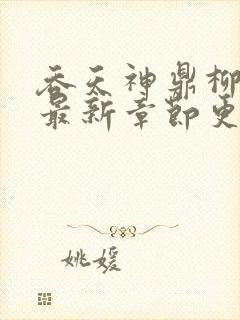 吞天神鼎柳
最新章节更
姚媛